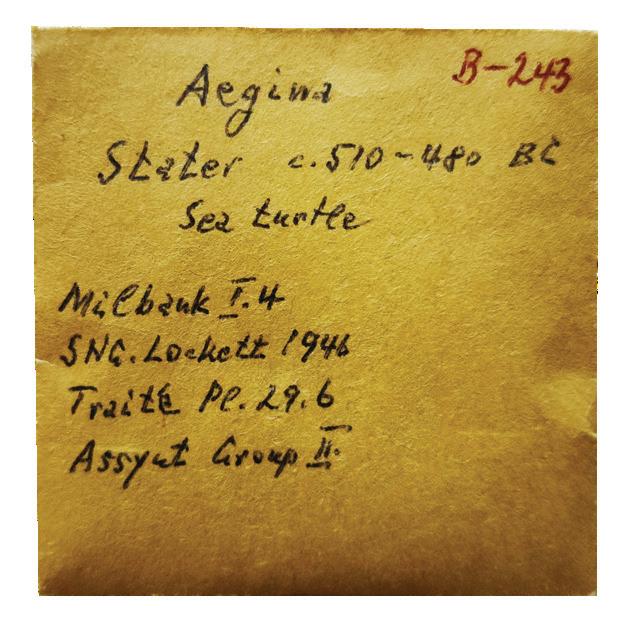 B-243
Aegina
Stater c.510-480 BC
Sea turtle
Milbank I.4
SNG.Lockett 1946
Traité Pl.29.6
Assyut Group II.